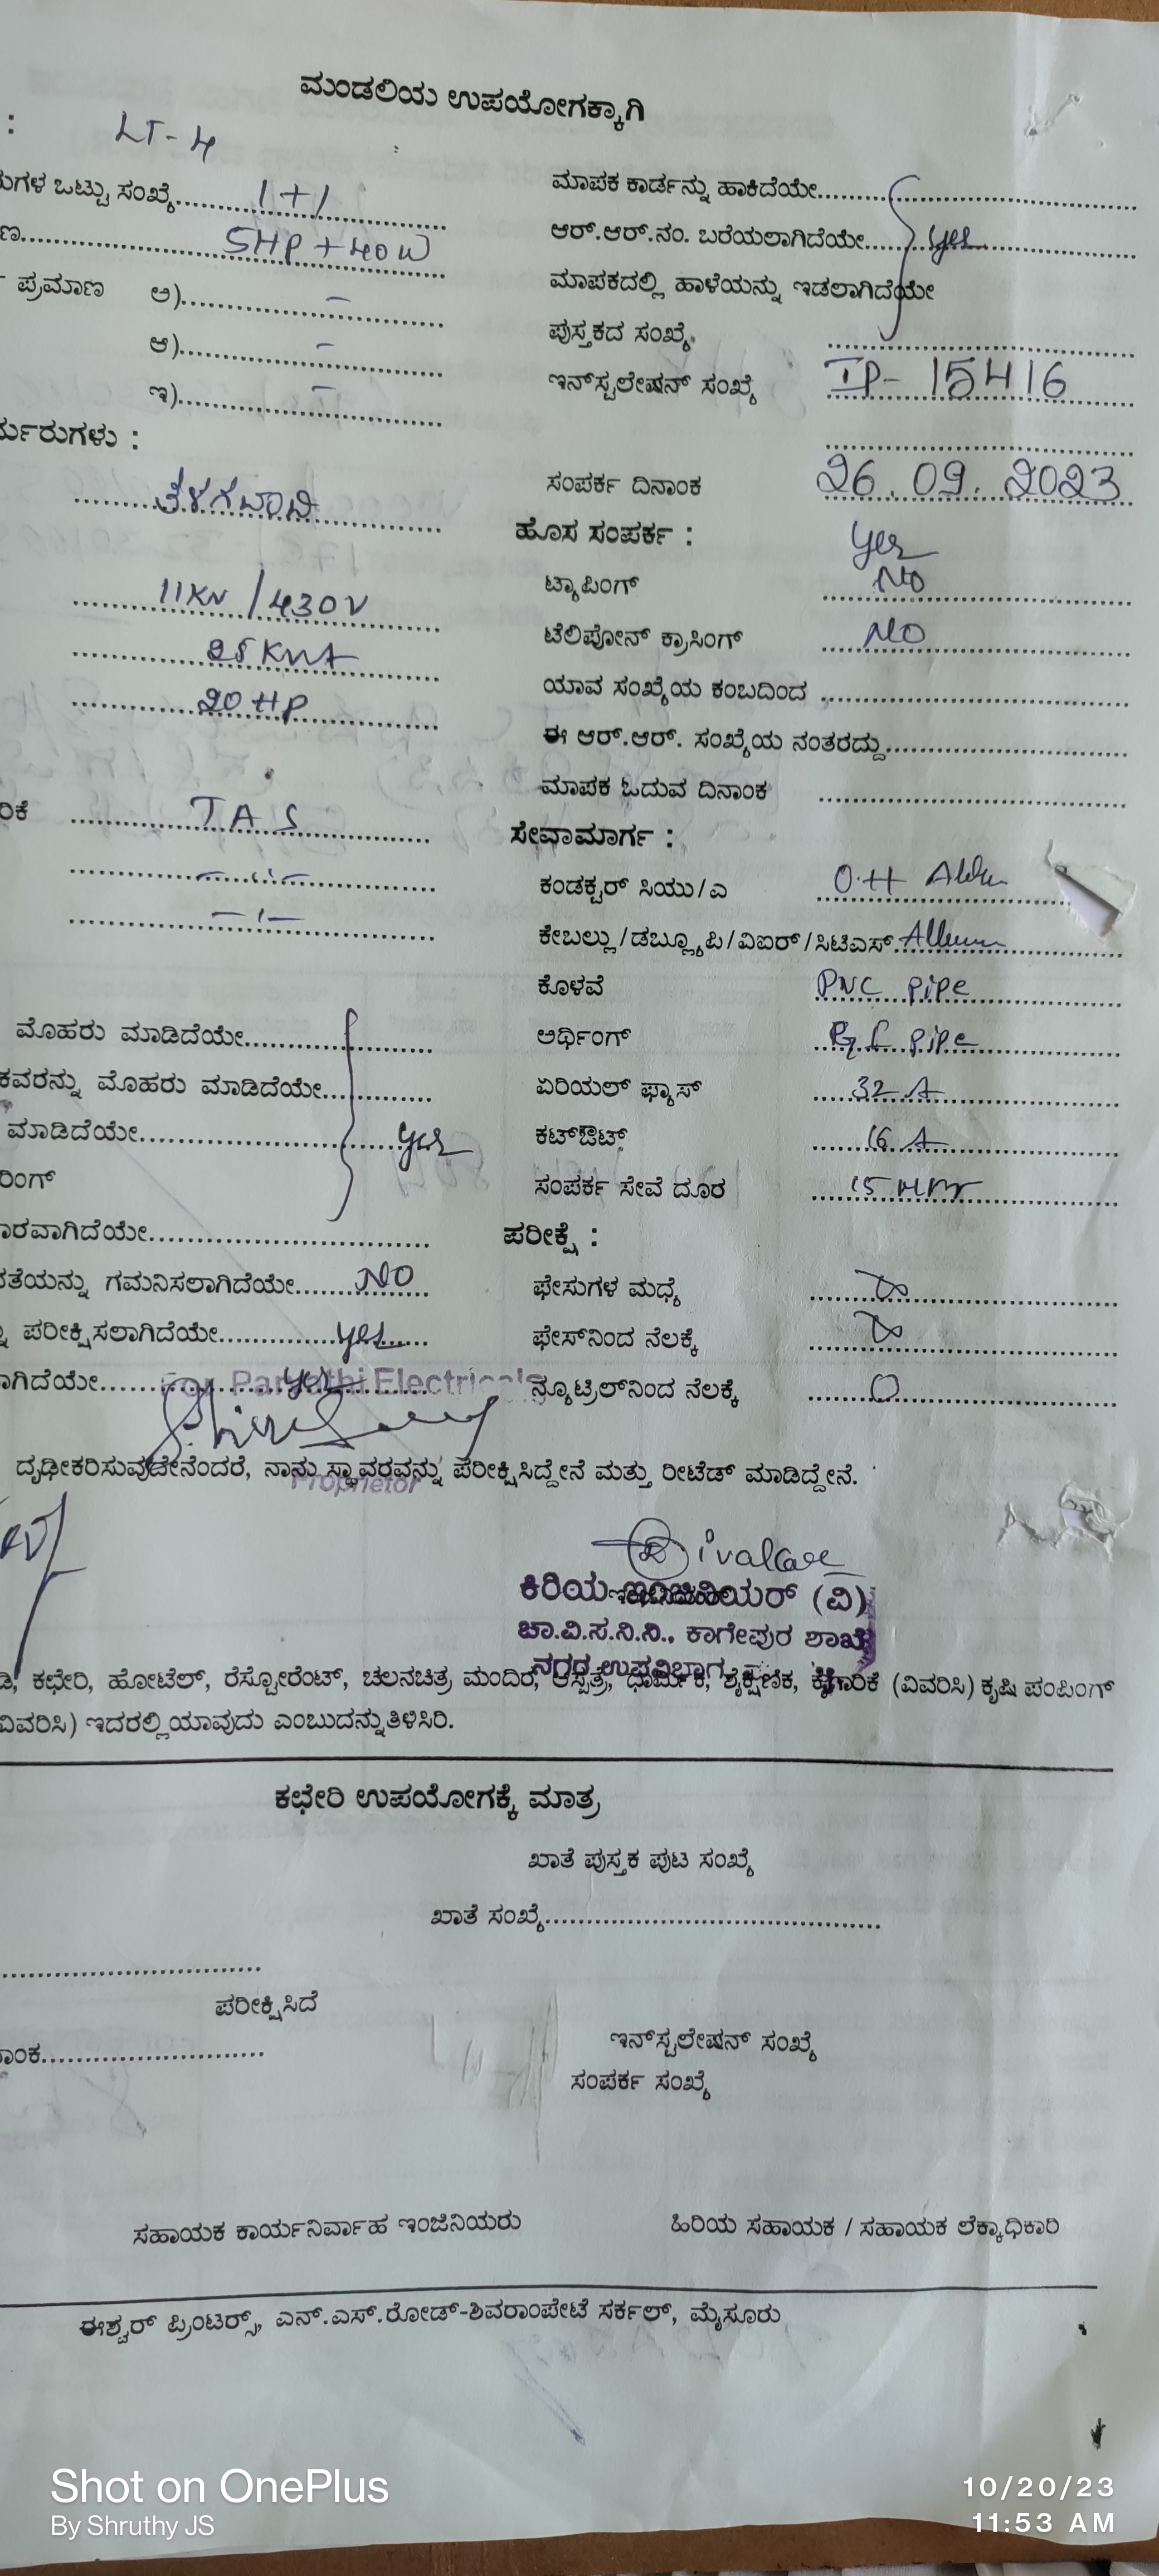 ಮಂಡಲಿಯ ಉಪಯೋಗಕ್ಕಾಗಿ
: LT-4
ಗಳ ಒಟ್ಟು ಸಂಖ್ಯೆ.......... 1+1
ಮಾಪಕ ಕಾರ್ಡನ್ನು ಹಾಕಿದೆಯೇ..........
ಣ.......... 5HP + 40 W
ಆರ್.ಆರ್.ನಂ. ಬರೆಯಲಾಗಿದೆಯೇ.......... yes
ಪ್ರಮಾಣ ಅ).......... –
ಮಾಪಕದಲ್ಲಿ ಹಾಳೆಯನ್ನು ಇಡಲಾಗಿದೆಯೇ
ಆ).......... –
ಪುಸ್ತಕದ ಸಂಖ್ಯೆ ..........
ಇ).......... –
ಇನ್‌ಸ್ಟಲೇಷನ್ ಸಂಖ್ಯೆ IP- 15416
ರ್ಮರುಗಳು :
ಸಂಪರ್ಕ ದಿನಾಂಕ 26.09.2023
ಹೊಸ ಸಂಪರ್ಕ : yes
11KV / 430V
ಟ್ಯಾಪಿಂಗ್ NO
25 KVA
ಟೆಲಿಫೋನ್ ಕ್ರಾಸಿಂಗ್ NO
20 HP
ಯಾವ ಸಂಖ್ಯೆಯ ಕಂಬದಿಂದ ..........
ಈ ಆರ್.ಆರ್. ಸಂಖ್ಯೆಯ ನಂತರದ್ದು..........
ಮಾಪಕ ಓದುವ ದಿನಾಂಕ ..........
ರಿಕೆ .......... TAS
ಸೇವಾಮಾರ್ಗ :
ಕಂಡಕ್ಟರ್ ಸಿಯು/ಎ O.H
ಕೇಬಲ್ಲು/ಡಬ್ಲ್ಯೂಪಿ/ವಿಐರ್/ಸಿಟಿಎಸ್
ಕೊಳವೆ PVC pipe
ಮೊಹರು ಮಾಡಿದೆಯೇ..........
ಅರ್ಥಿಂಗ್ pipe
ಕವರನ್ನು ಮೊಹರು ಮಾಡಿದೆಯೇ..........
ಏರಿಯಲ್ ಫ್ಯೂಸ್ 32 A
ಮಾಡಿದೆಯೇ.......... yes
ಕಟ್‌ಔಟ್ 16 A
ರಿಂಗ್
ಸಂಪರ್ಕ ಸೇವೆ ದೂರ 15
ಾರವಾಗಿದೆಯೇ..........
ಪರೀಕ್ಷೆ :
ತೆಯನ್ನು ಗಮನಿಸಲಾಗಿದೆಯೇ.......... NO
ಫೇಸುಗಳ ಮಧ್ಯೆ ..........
ಪರೀಕ್ಷಿಸಲಾಗಿದೆಯೇ.......... yes
ಫೇಸ್‌ನಿಂದ ನೆಲಕ್ಕೆ ..........
ಾಗಿದೆಯೇ.......... yes
For Parvathi Electricals
ನ್ಯೂಟ್ರಲ್‌ನಿಂದ ನೆಲಕ್ಕೆ .......... 0
ದೃಢೀಕರಿಸುವುದೇನೆಂದರೆ, ನಾನು ಸ್ಥಾವರವನ್ನು ಪರೀಕ್ಷಿಸಿದ್ದೇನೆ ಮತ್ತು ರೀಟೆಡ್ ಮಾಡಿದ್ದೇನೆ.
Proprietor
ಕಿರಿಯ ಇಂಜಿನಿಯರ್ (ವಿ)
ಚಾ.ವಿ.ಸ.ನಿ.ನಿ., ಕಾಗೇಪುರ ಶಾಖೆ
ನಗರ ಉಪವಿಭಾಗ
ಡಿ, ಕಛೇರಿ, ಹೋಟೆಲ್, ರೆಸ್ಟೋರೆಂಟ್, ಚಲನಚಿತ್ರ ಮಂದಿರ, ಆಸ್ಪತ್ರೆ, ಧಾರ್ಮಿಕ, ಶೈಕ್ಷಣಿಕ, ಕೈಗಾರಿಕೆ (ವಿವರಿಸಿ) ಕೃಷಿ ಪಂಪಿಂಗ್
ವಿವರಿಸಿ) ಇದರಲ್ಲಿ ಯಾವುದು ಎಂಬುದನ್ನು ತಿಳಿಸಿರಿ.
ಕಛೇರಿ ಉಪಯೋಗಕ್ಕೆ ಮಾತ್ರ
ಖಾತೆ ಪುಸ್ತಕ ಪುಟ ಸಂಖ್ಯೆ
ಖಾತೆ ಸಂಖ್ಯೆ..........
ಪರೀಕ್ಷಿಸಿದೆ
ಾಂಕ..........
ಇನ್‌ಸ್ಟಲೇಷನ್ ಸಂಖ್ಯೆ
ಸಂಪರ್ಕ ಸಂಖ್ಯೆ
ಸಹಾಯಕ ಕಾರ್ಯನಿರ್ವಾಹ ಇಂಜಿನಿಯರು
ಹಿರಿಯ ಸಹಾಯಕ / ಸಹಾಯಕ ಲೆಕ್ಕಾಧಿಕಾರಿ
ಈಶ್ವರ್ ಪ್ರಿಂಟರ್ಸ್, ಎನ್.ಎಸ್.ರೋಡ್-ಶಿವರಾಂಪೇಟೆ ಸರ್ಕಲ್, ಮೈಸೂರು
Shot on OnePlus
By Shruthy JS
10/20/23
11:53 AM